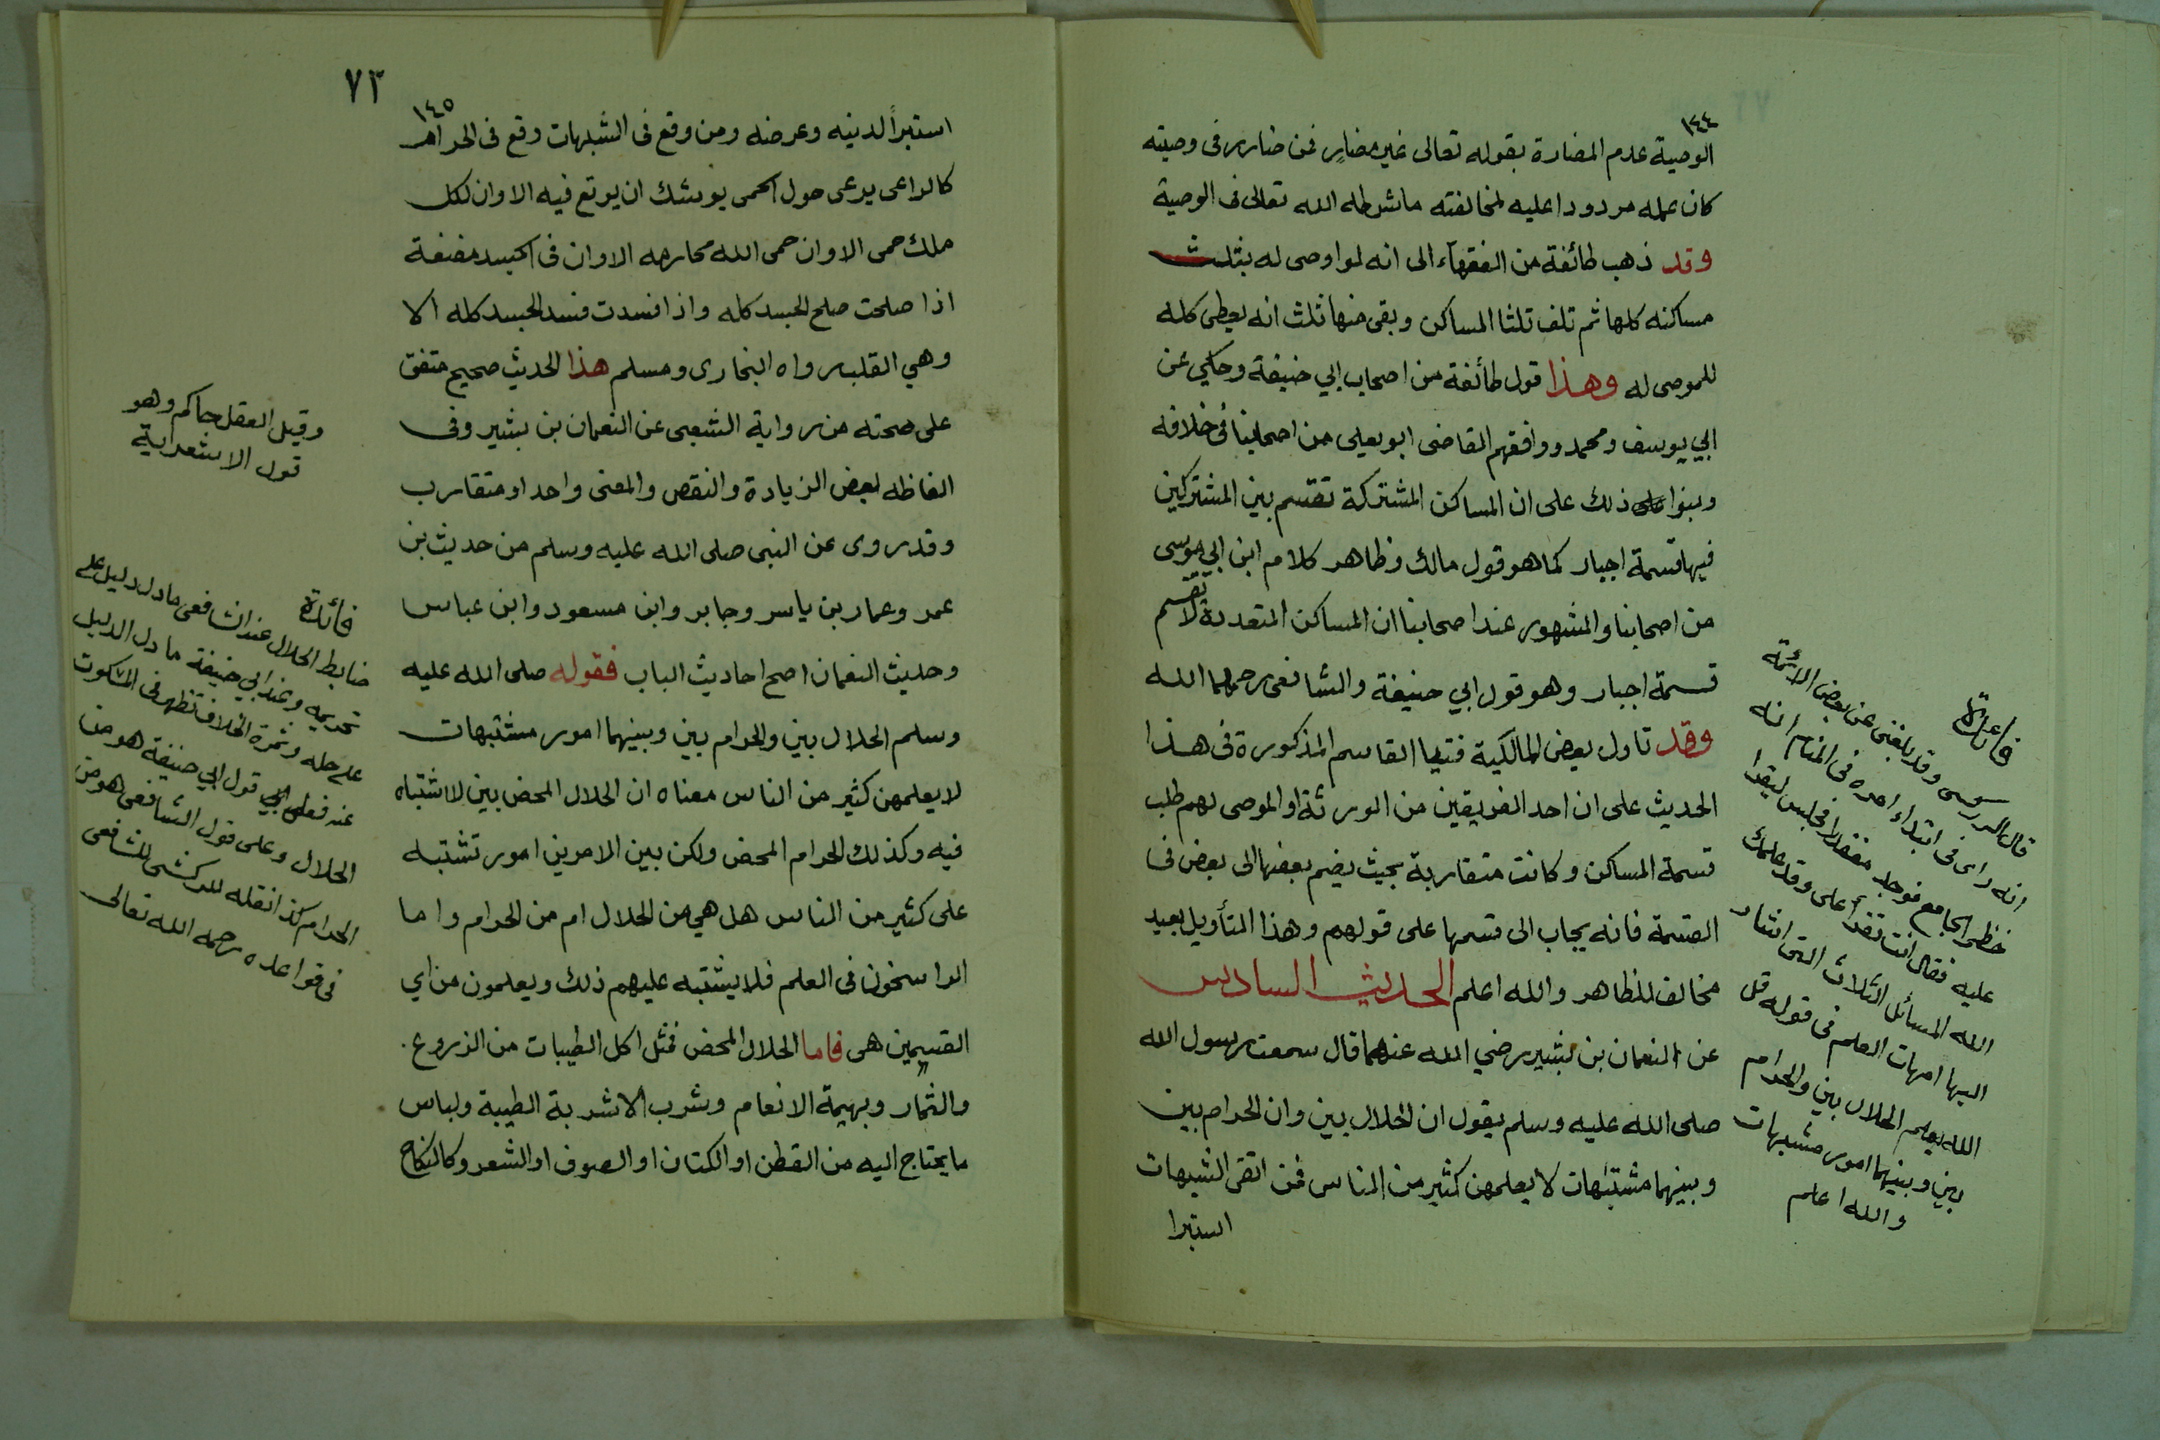 ١٤٤
الوصية عدم المضارة بقوله تعالى غير مضار فمن ضارر فى وصيته
كان عمله مردودا عليه لمخالفته ما شرطه الله تعالى فى الوصية
وقد ذهب طائفة من الفقهآء الى انه لو اوصى له بثلث
مساكنه كلها ثم تلف ثلثا المساكن وبقى منها ثلث انه يعطى كله
للموصى له وهذا قول طائفة من اصحاب ابي حنيفة وحكي عن
ابي يوسف ومحمد ووافقهم القاضى ابو يعلى من اصحابنا فى خلافه
وبنوا ذلك على ان المساكن المشتركة تقتسم بين المشتركين
فيها قسمة اجبار كما هو قول مالك وظاهر كلام ابن ابي موسى
من اصحابنا والمشهور عند اصحابنا ان المساكن المتعددة لا تقسم
قسمة اجبار وهو قول ابي حنيفة والشافعى رحمهما الله
وقد تاول بعض المالكية فتيا القاسم المذكورة فى هذا
الحديث على ان احد الفريقين من الورثة او الموصى لهم طلب
قسمة المساكن وكانت متقاربة بحيث يضم بعضها الى بعض فى
القسمة فانه يجاب الى قسمها على قولهم وهذا التأويل بعيد
مخالف للظاهر والله اعلم الحديث السادس
عن النعمان بن بشير رضي الله عنهما قال سمعت رسول الله
صلى الله عليه وسلم يقول ان الحلال بين وان الحرام بين
وبينهما مشتبهات لا يعلمهن كثير من الناس فمن اتقى الشبهات
استبرا
فائدة
قال السرسى وقد بلغنى عن بعض الائمة
انه راى فى ابتداء امره فى المنام انه
الجامع فوجد مقعدا فجلس ليقرا
عليه فقال انت تقرأ على وقد علمك
الله المسائل الثلاث التى اشار
اليها امهات العلم فى قوله قل
الله يعلم الحلال بين والحرام
بين وبينهما امور مشبهات
والله اعلم
٧٣
١٤٥
استبرأ لدينه وعرضه ومن وقع فى الشبهات وقع فى الحرام
كالراعى يرعى حول الحمى يوشك ان يرتع فيه الا وان لكل
ملك حمى الا وان حمى الله محارمه الا وان فى الجسد مضغة
اذا صلحت صلح الجسد كله واذا فسدت فسد الجسد كله الا
وهي القلب رواه البخارى ومسلم هذا الحديث صحيح متفق
على صحته من رواية الشعبى عن النعمان بن بشير وفى
الفاظه بعض الزيادة والنقص والمعنى واحد او متقارب
وقد روى عن النبى صلى الله عليه وسلم من حديث بن
عمر وعمار بن ياسر وجابر وابن مسعود وابن عباس
وحديث النعمان اصح احاديث الباب فقوله صلى الله عليه
وسلم الحلال بين والحرام بين وبينهما امور مشتبهات
لا يعلمهن كثير من الناس معناه ان الحلال المحض بين لا اشتباه
فيه وكذلك الحرام المحض ولكن بين الامرين امور تشتبه
على كثير من الناس هل هي من الحلال ام من الحرام واما
الراسخون فى العلم فلا يشتبه عليهم ذلك ويعلمون من اي
القسمين هى فاما الحلال المحض فمثل اكل الطيبات من الزروع
والثمار وبهيمة الانعام وشرب الاشربة الطيبة ولباس
ما يحتاج اليه من القطن او الكتان او الصوف او الشعر وكالنكاح
وقيل العقل حاكم وهو
قول الاشعراية
فائدة
ضابط الحلال عند الشافعى ما دل دليل على
تحريمه وعند ابي حنيفة ما دل الدليل
على حله وثمرة الخلاف تظهر فى المسكوت
عنه فعلى قول ابي حنيفة هو من
الحلال وعلى قول الشافعى هو من
الحرام كذا نقله الزركشى للشافعى
فى قواعده رحمه الله تعالى